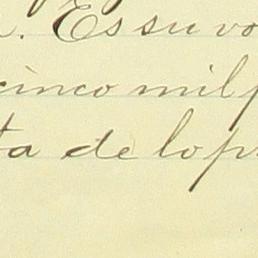 . Es su vo
cinco mil p
ta de lo p